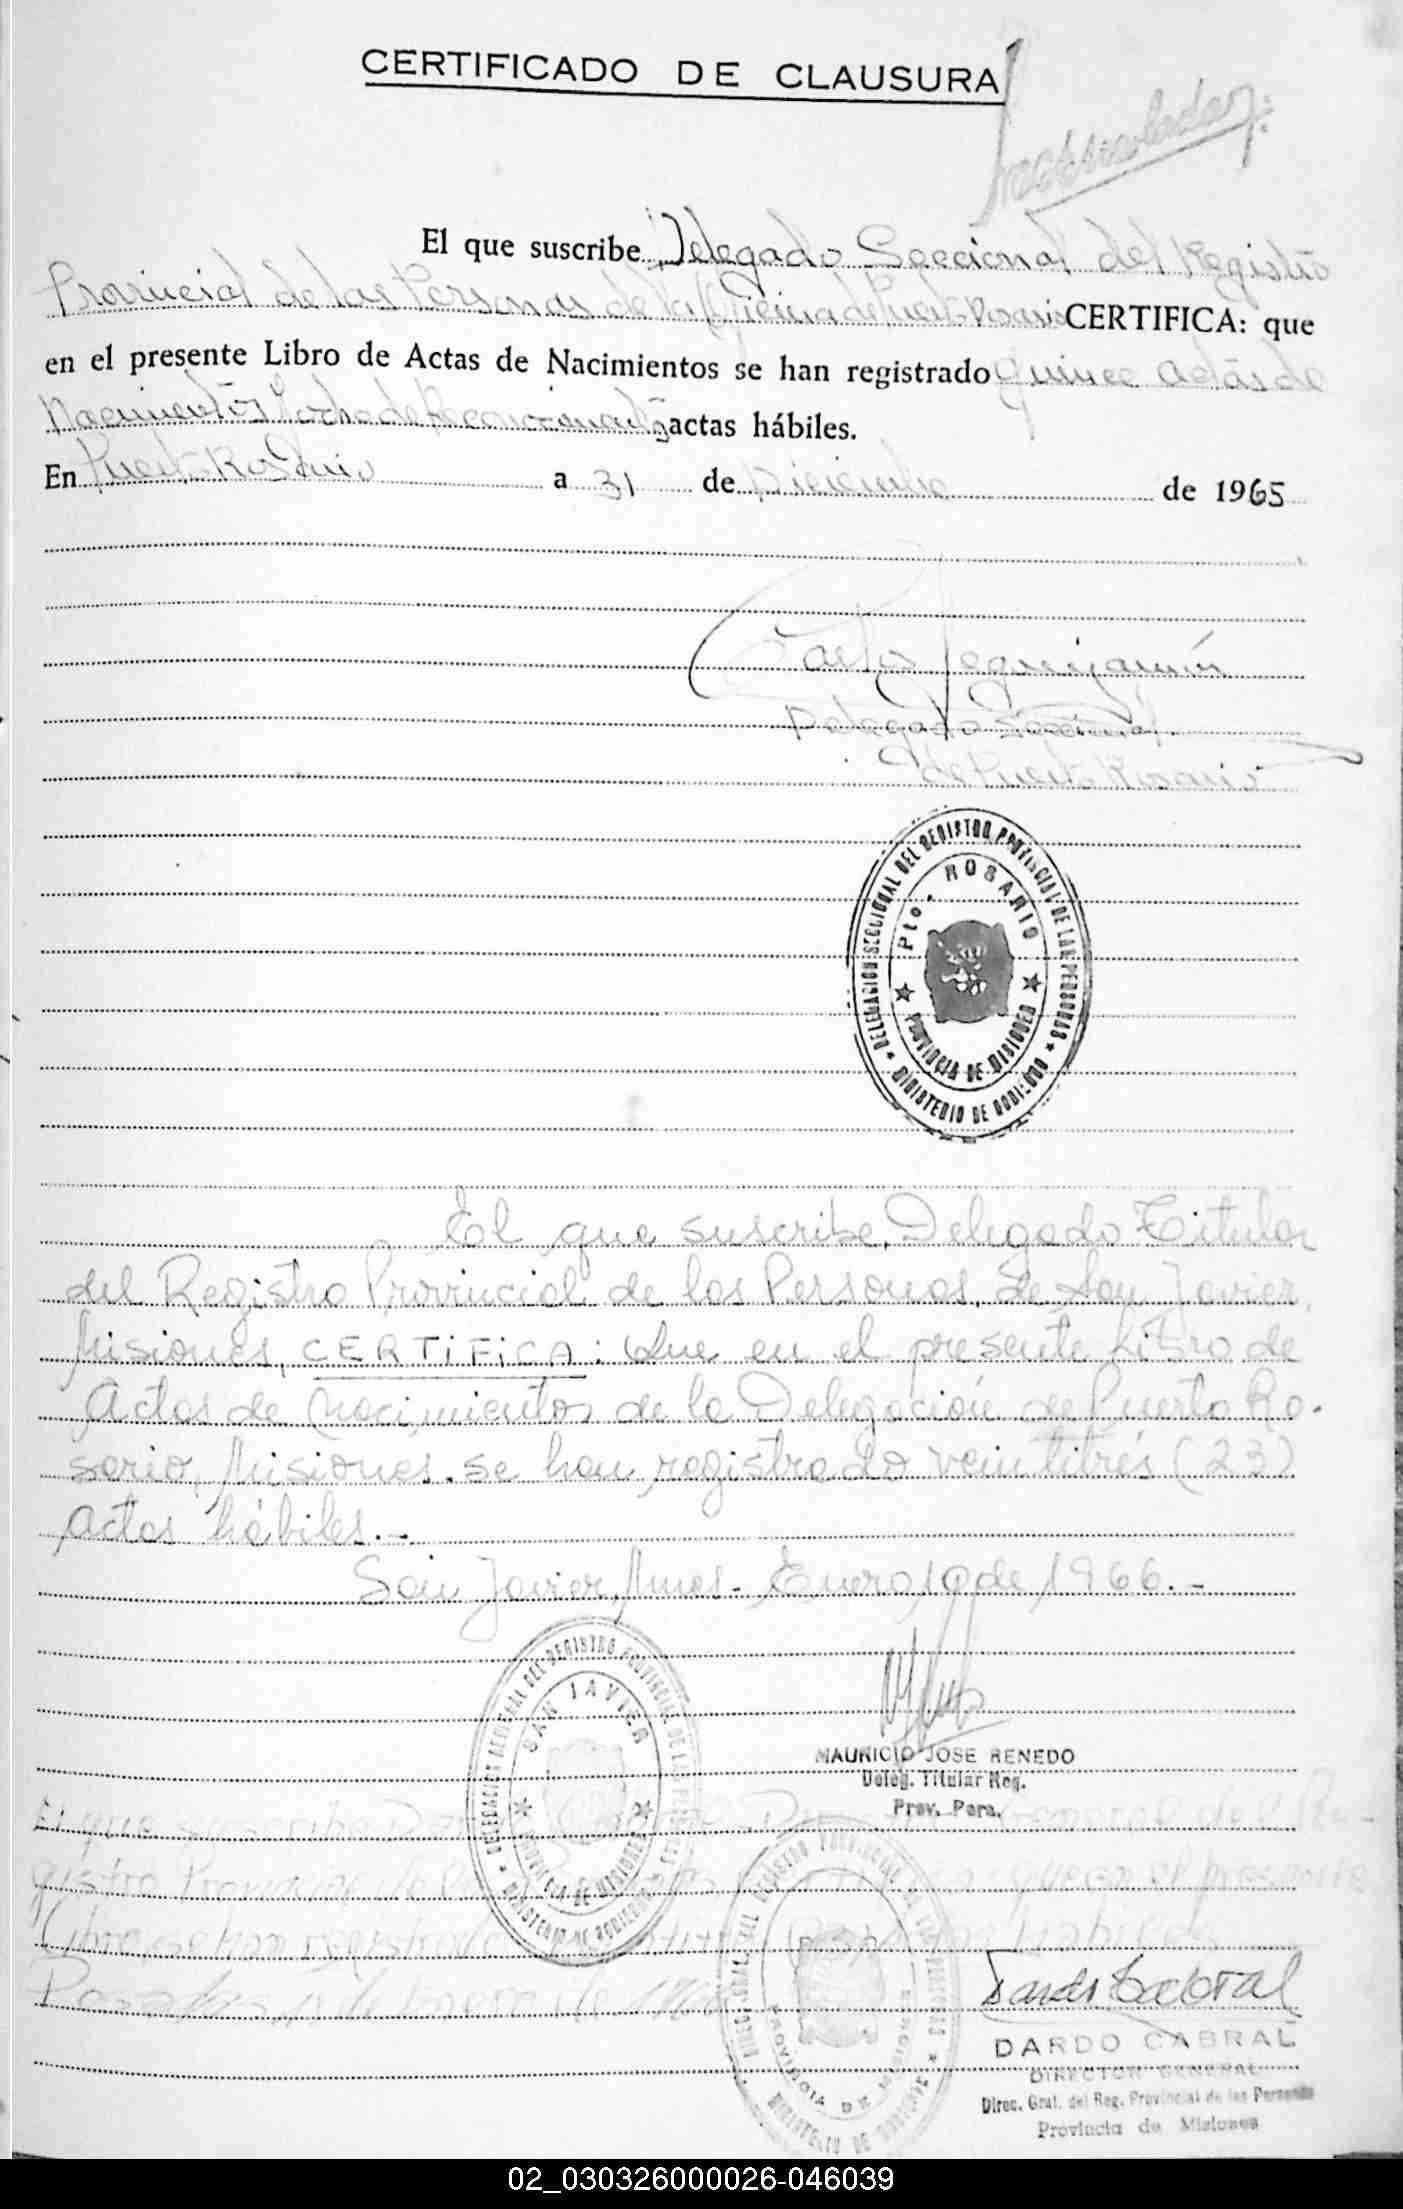 CERTIFICADO DE CLAUSURA
El que suscribe Delegado Seccional del Registro
Provincial de las Personas de la Oficina de Puerto Rosario CERTIFICA: que
en el presente Libro de Actas de Nacimientos se han registrado quince actas de
Nacimientos y ocho de Reconocimientos actas hábiles.
En Puerto Rosario a 31 de Diciembre de 1965
Delegado Seccional
de Puerto Rosario
DELEGACION SECCIONAL DEL REGISTRO PROVINCIAL DE LAS PERSONAS
Pto. ROSARIO
PROVINCIA DE MISIONES
MINISTERIO DE GOBIERNO
El que suscribe, Delegado Titular
del Registro Provincial de las Personas, de San Javier,
Misiones, CERTIFICA: Que en el presente Libro de
Actas de Nacimientos de la Delegación de Puerto Ro-
sario, Misiones, se han registrado veintitrés (23)
Actas hábiles.-
San Javier, Mnes- Enero 10 de 1966.-
SAN JAVIER
PROVINCIA DE MISIONES
MINISTERIO DE GOBIERNO
MAURICIO JOSE RENEDO
Deleg. Titular Reg.
Prov. Pers.
El que General del Re-
gistro Provincial de que en el presente
Libro se han registrado hábiles
Posadas de Enero de
Dardo Cabral
DARDO CABRAL
DIRECTOR GENERAL
Direc. Gral. del Reg. Provincial de las Personas
Provincia de Misiones
02_030326000026-046039